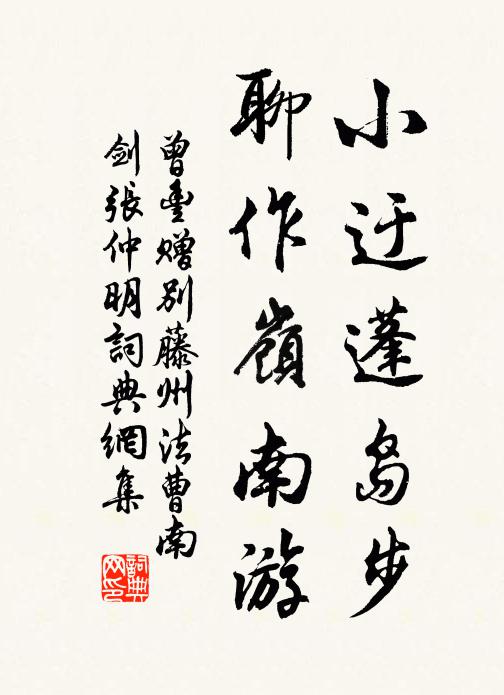 小迂蓬岛步
聊作嶺南游
曾豐赠别藤州法曹南
剑張仲明詞典網集
詞典网印